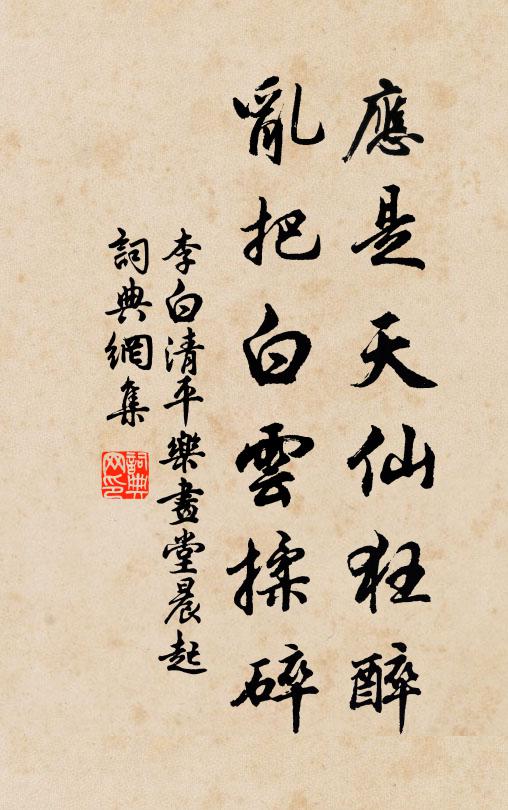 應是天仙狂醉
亂把白雲揉碎
李白清平樂畫堂晨起
詞典網集
詞典網印